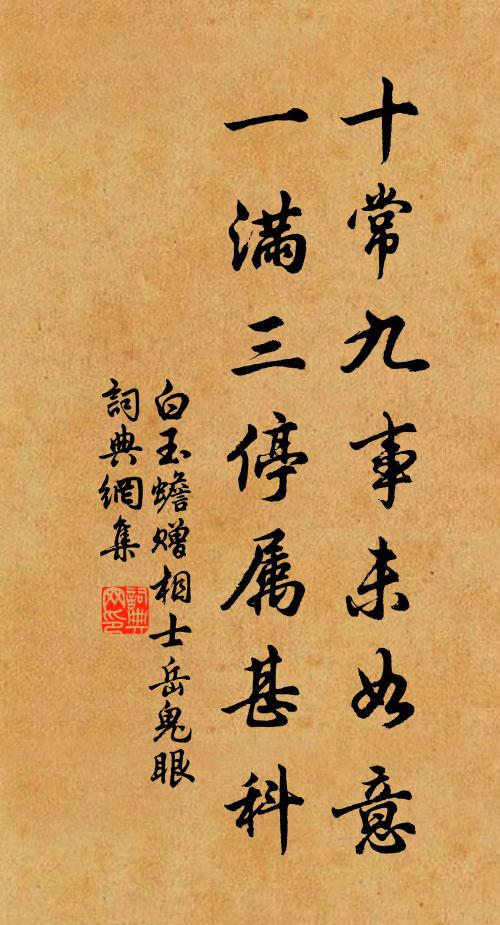 十常九事未如意
一满三停属甚科
白玉蟾赠相士岳鬼眼
詞典網集
詞典网印